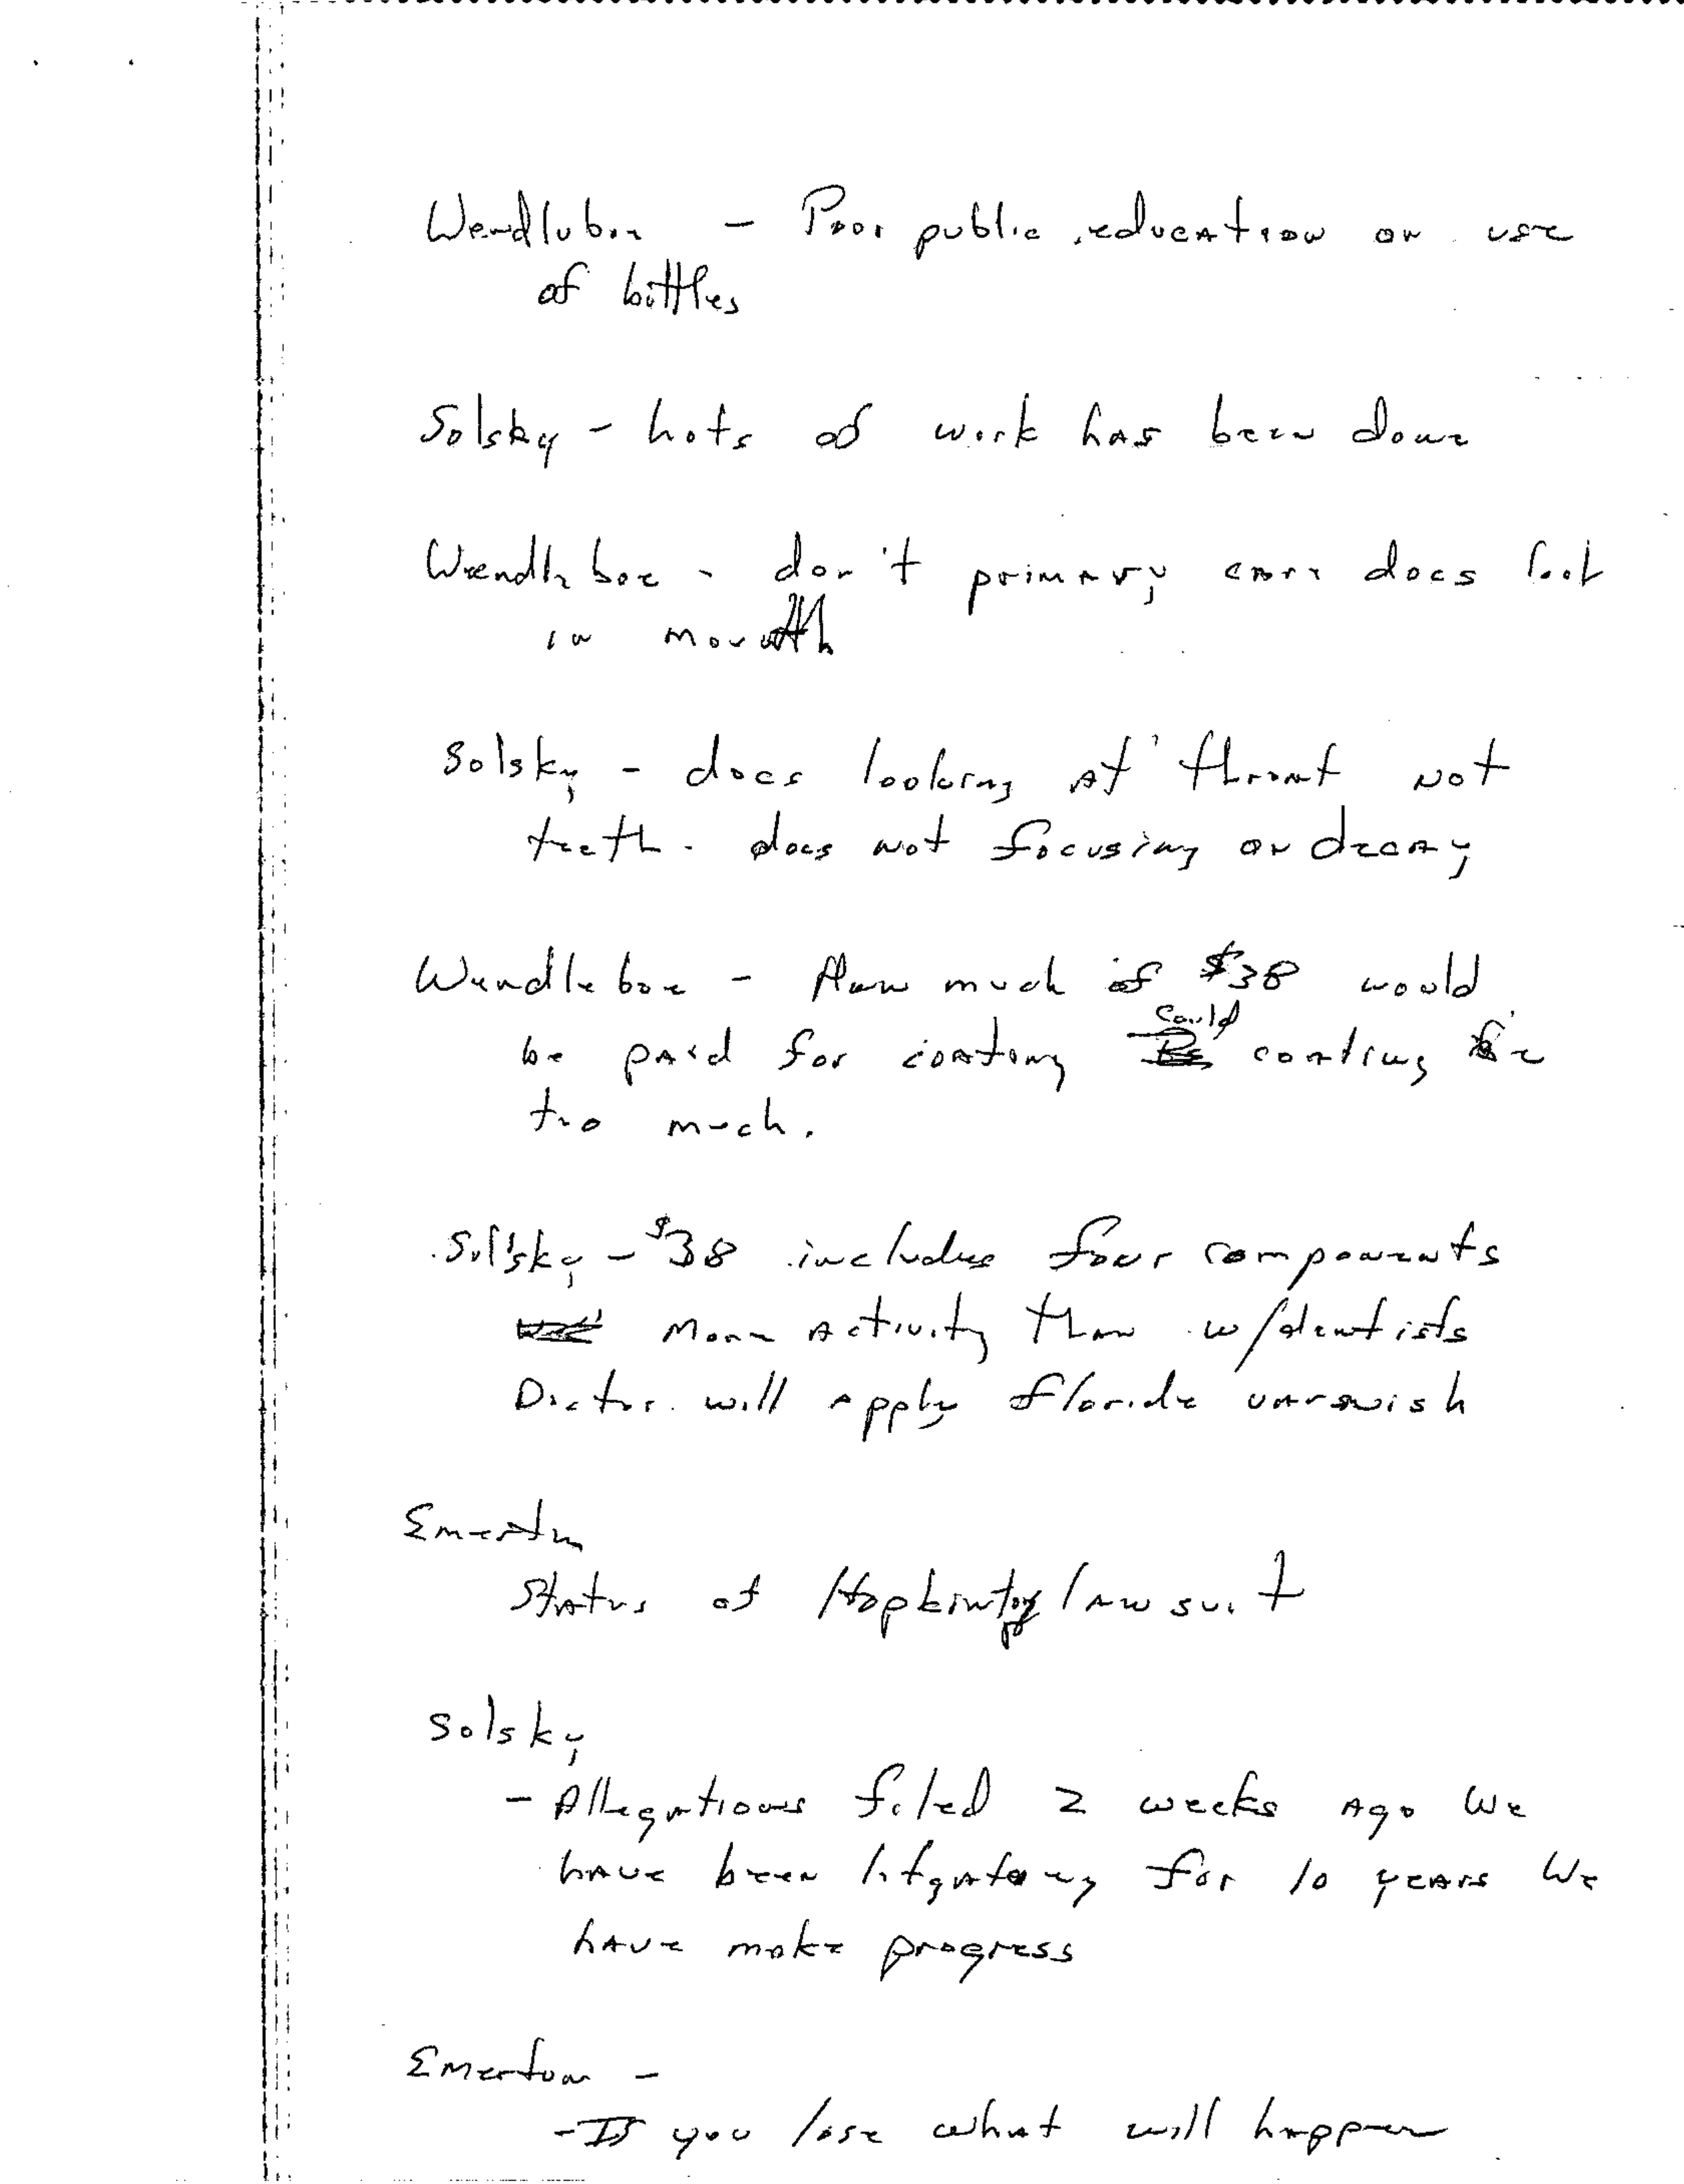 Wendlubox - Poor public education on use
of bottles
Solsky - hots of work has been done
Wendlebox - don't primary care docs look
in mouth
Solsky - docs looking at throat not
teeth. docs not focusing on decay
Wendlebox - How much of $38 would
be paid for coating could coating be
too much.
Solsky - $38 includes four components
more activity than w/dentists
Doctor will apply floride varnish
Emerton
Status of Hopkinton lawsuit
Solsky
- Allegations filed 2 weeks ago We
have been litigating for 10 years We
have make progress
Emerton -
- If you lose what will happen